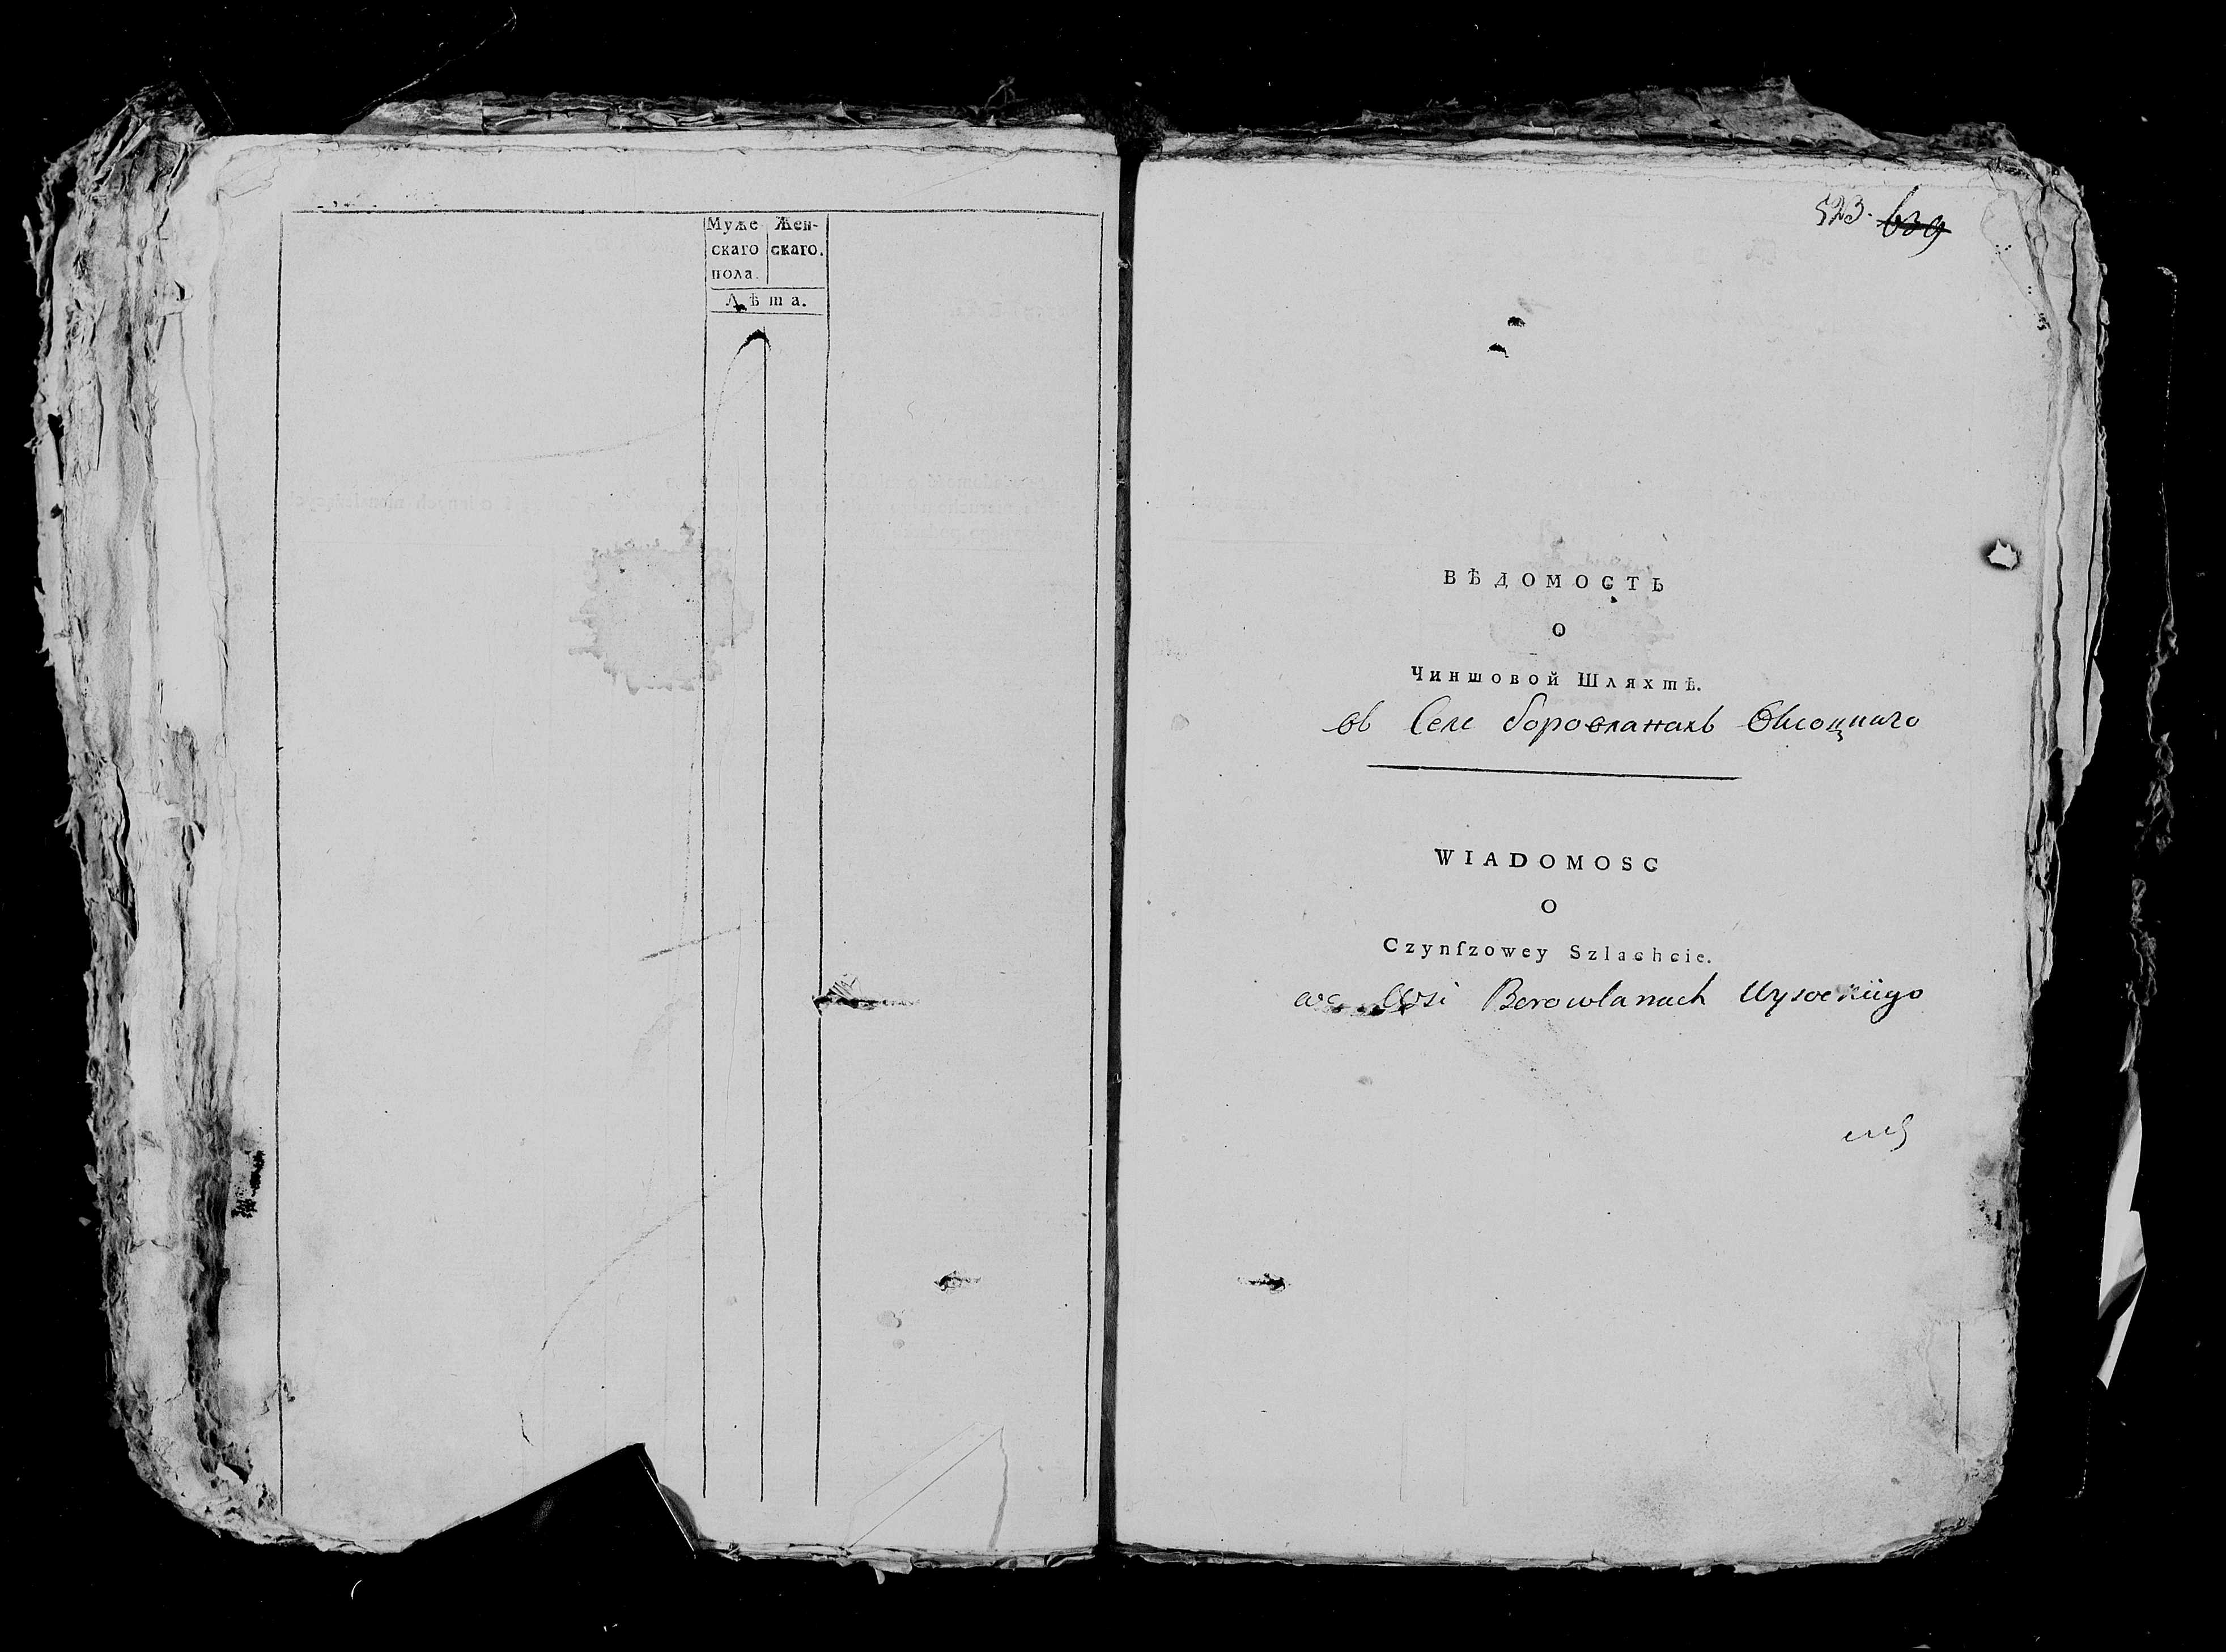 Муже Жен-
скаго скаго.
пола.
Лѣта.
523. 639
ВѢДОМОСТЬ
О
Чиншовой Шляхтѣ.
въ Селе боровланахъ
WIADOMOSC
O
Czynſzowey Szlachcie.
we Wsi Borowlanach Wysockiego